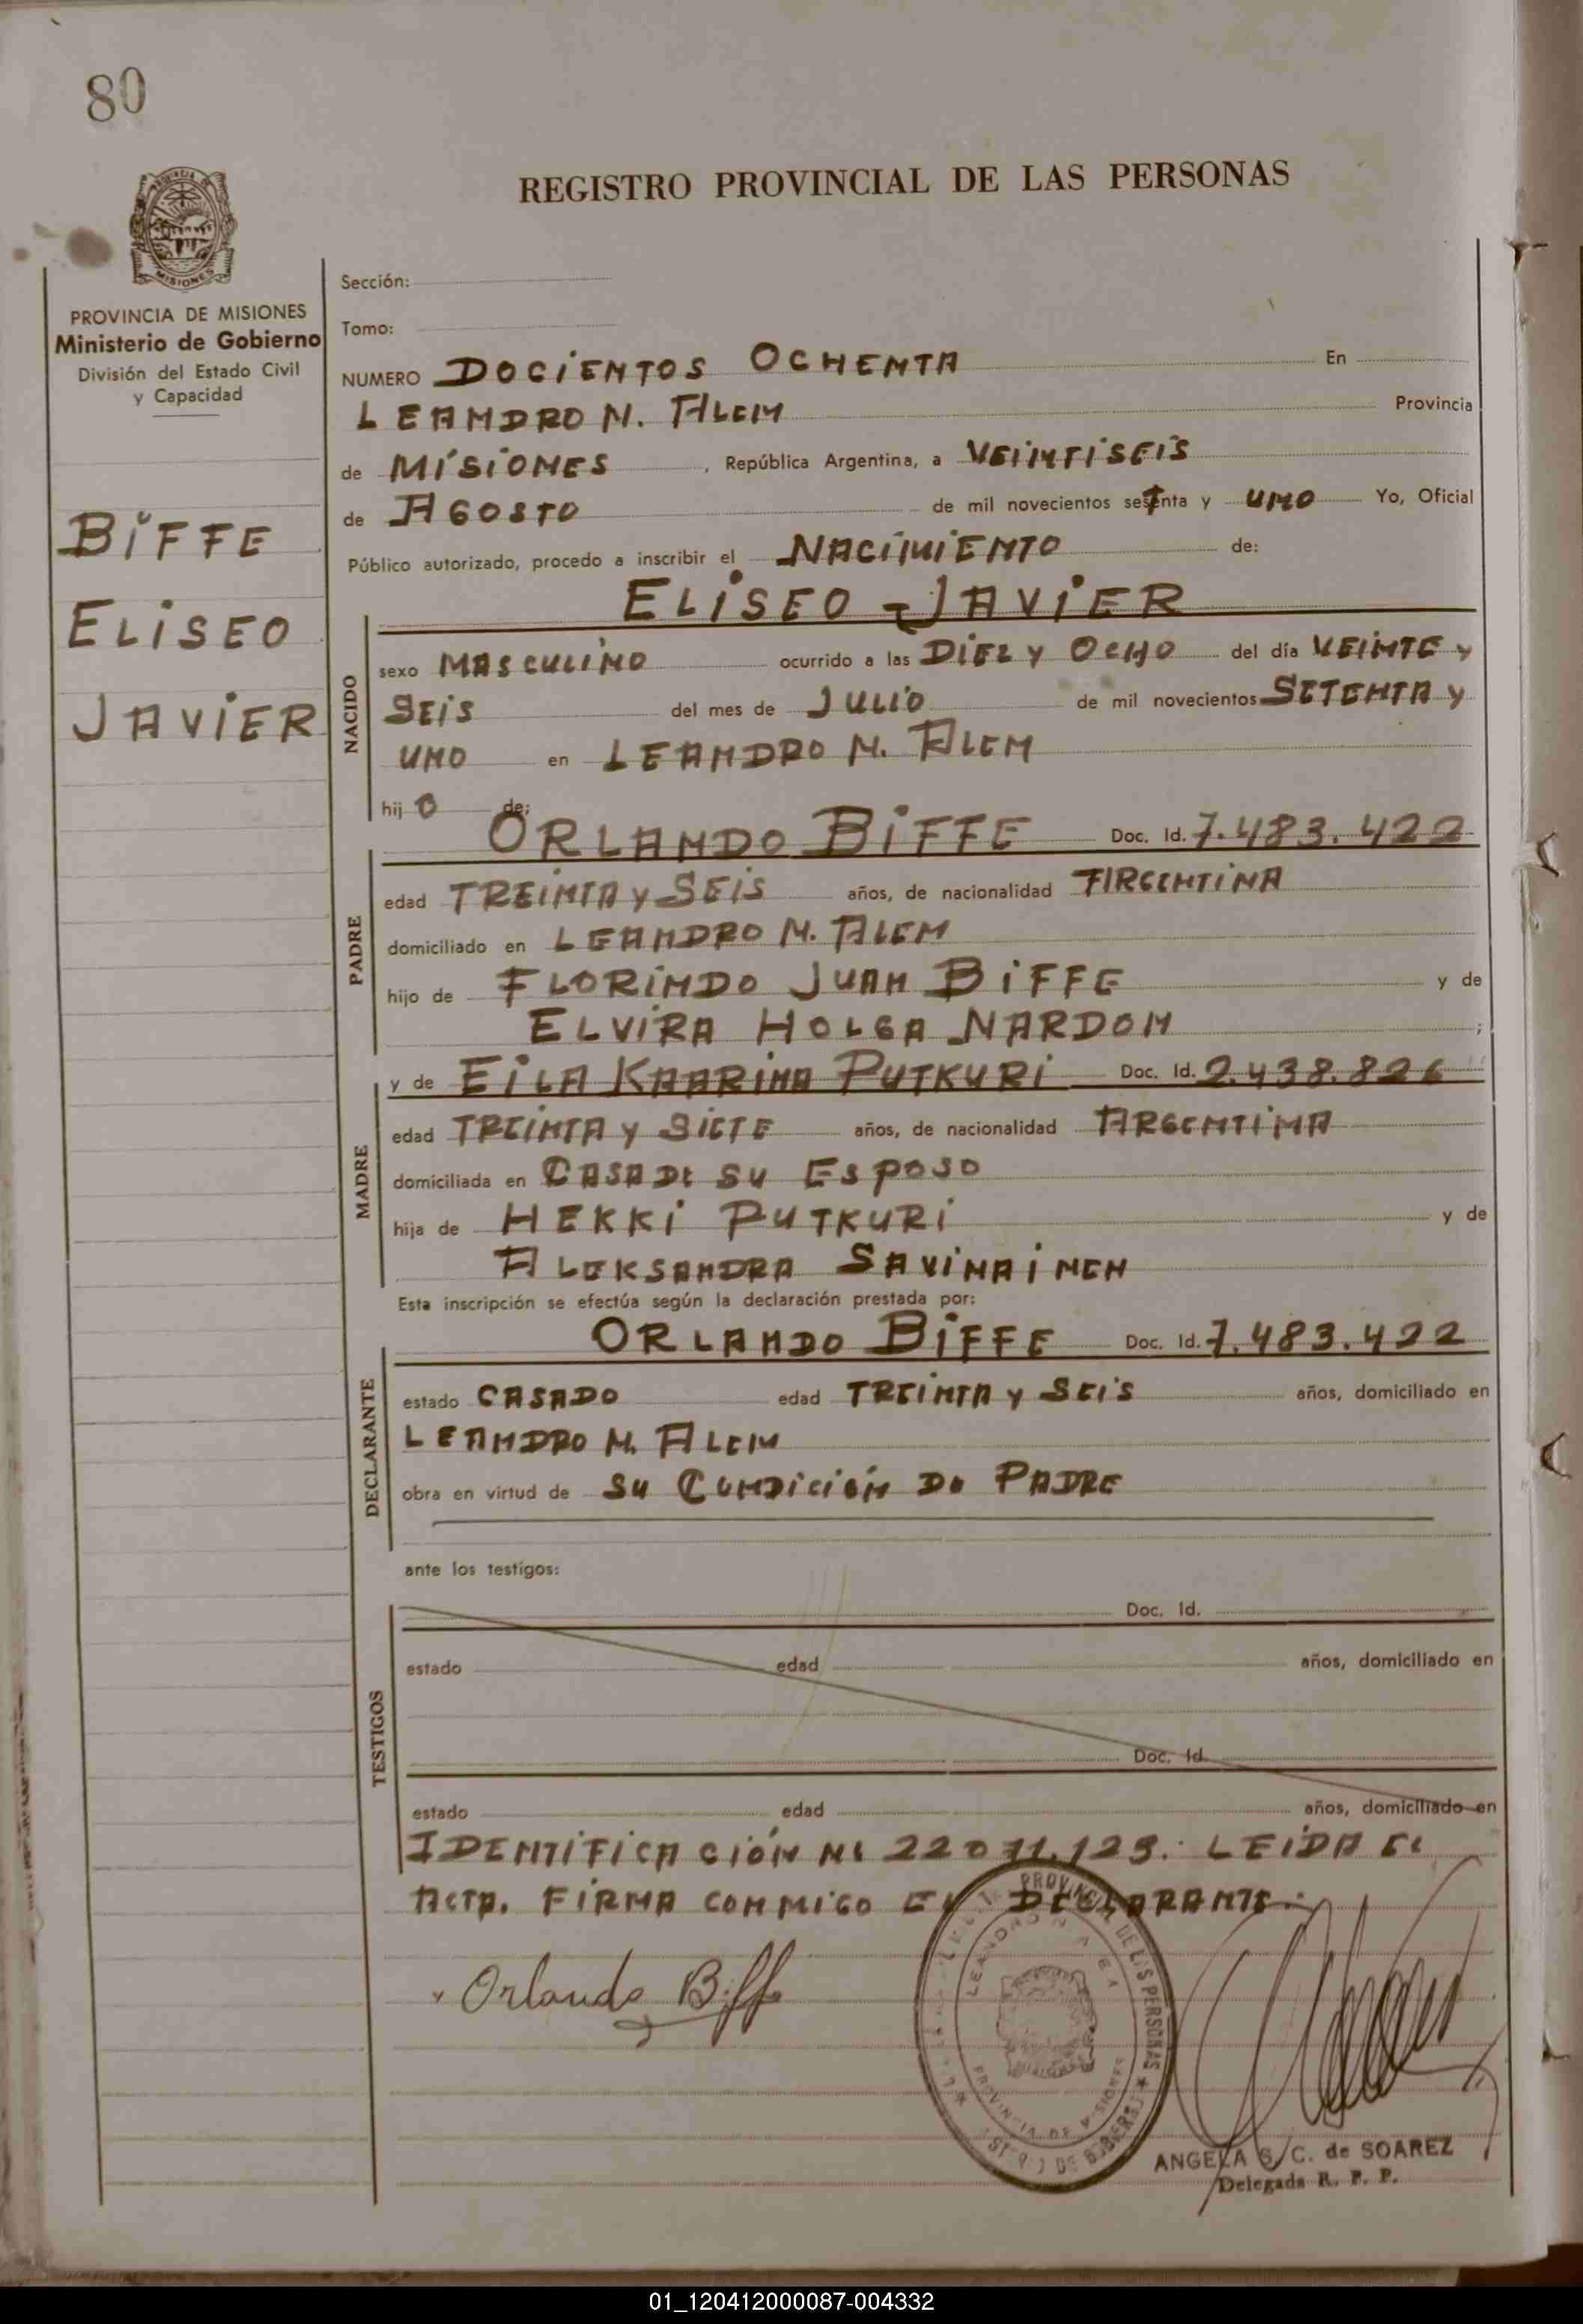 80
REGISTRO PROVINCIAL DE LAS PERSONAS
MISIONES
PROVINCIA DE MISIONES
Ministerio de Gobierno
División del Estado Civil
y Capacidad
BIFFE
ELISEO
JAVIER
Sección:
Tomo:
NUMERO DOCIENTOS OCHENTA En
LEANDRO N. ALEM Provincia
de MISIONES, República Argentina, a VEINTISEIS
de AGOSTO de mil novecientos setenta y UNO Yo, Oficial
Público autorizado, procedo a inscribir el NACIMIENTO de:
ELISEO JAVIER
NACIDO
sexo MASCULINO ocurrido a las DIEZ Y OCHO del día VEINTE Y
SEIS del mes de JULIO de mil novecientos SETENTA Y
UNO en LEANDRO N. ALEM
hijO de:
ORLANDO BIFFE Doc. Id. 7.483.422
PADRE
edad TREINTA Y SEIS años, de nacionalidad ARGENTINA
domiciliado en LEANDRO N. ALEM
hijo de FLORINDO JUAN BIFFE y de
ELVIRA HOLGA NARDON;
y de EILA KAARINA PUTKURI Doc. Id. 2.438.826
MADRE
edad TREINTA Y SIETE años, de nacionalidad ARGENTINA
domiciliada en CASA DE SU ESPOSO
hija de HEKKI PUTKURI y de
ALEKSANDRA SAVINAINEN
Esta inscripción se efectúa según la declaración prestada por:
ORLANDO BIFFE Doc. Id. 7.483.422
DECLARANTE
estado CASADO edad TREINTA Y SEIS años, domiciliado en
LEANDRO N. ALEM
obra en virtud de SU CONDICIÓN DE PADRE
ante los testigos:
Doc. Id.
TESTIGOS
estado edad años, domiciliado en
Doc. Id.
estado edad años, domiciliado en
IDENTIFICACIÓN Nº 22011.129. LEIDA EL
ACTA. FIRMA CONMIGO EL DECLARANTE.
Orlando Biffe
PROVINCIA DE MISIONES
ANGELA S. C. de SOAREZ
Delegada R. P. P.
01_120412000087-004332